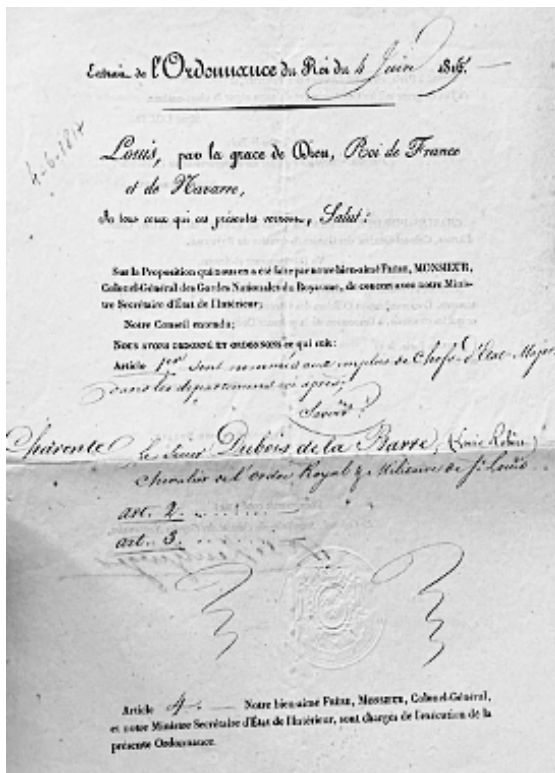 Extrait de l'Ordonnance du Roi du 4 Juin
4-6-1817
Louis, par la grace de Dieu, Roi de France
et de Navarre,
A tous ceux qui ces présentes verront, Salut:
Sur la Proposition qui nous en a été faite par notre bien-aimé Frère, MONSIEUR,
Colonel-Général des Gardes Nationales du Royaume, de concert avec notre Minis-
tre Secrétaire d'État de l'Intérieur;
Notre Conseil entendu;
NOUS AVONS ORDONNÉ ET ORDONNONS ce qui suit:
Article 1er Sont nommés aux emplois de Chefs d'Etat-Major
dans les départemens ci après;
Savoir:
Charente Le Sieur Dubois de la Barre,
Chevalier de l'ordre Royal & Militaire de St Louis
art. 2.
art. 3.
Article 4. Notre bien-aimé Frère, MONSIEUR, Colonel-Général,
et notre Ministre Secrétaire d'État de l'Intérieur, sont chargés de l'exécution de la
présente Ordonnance.